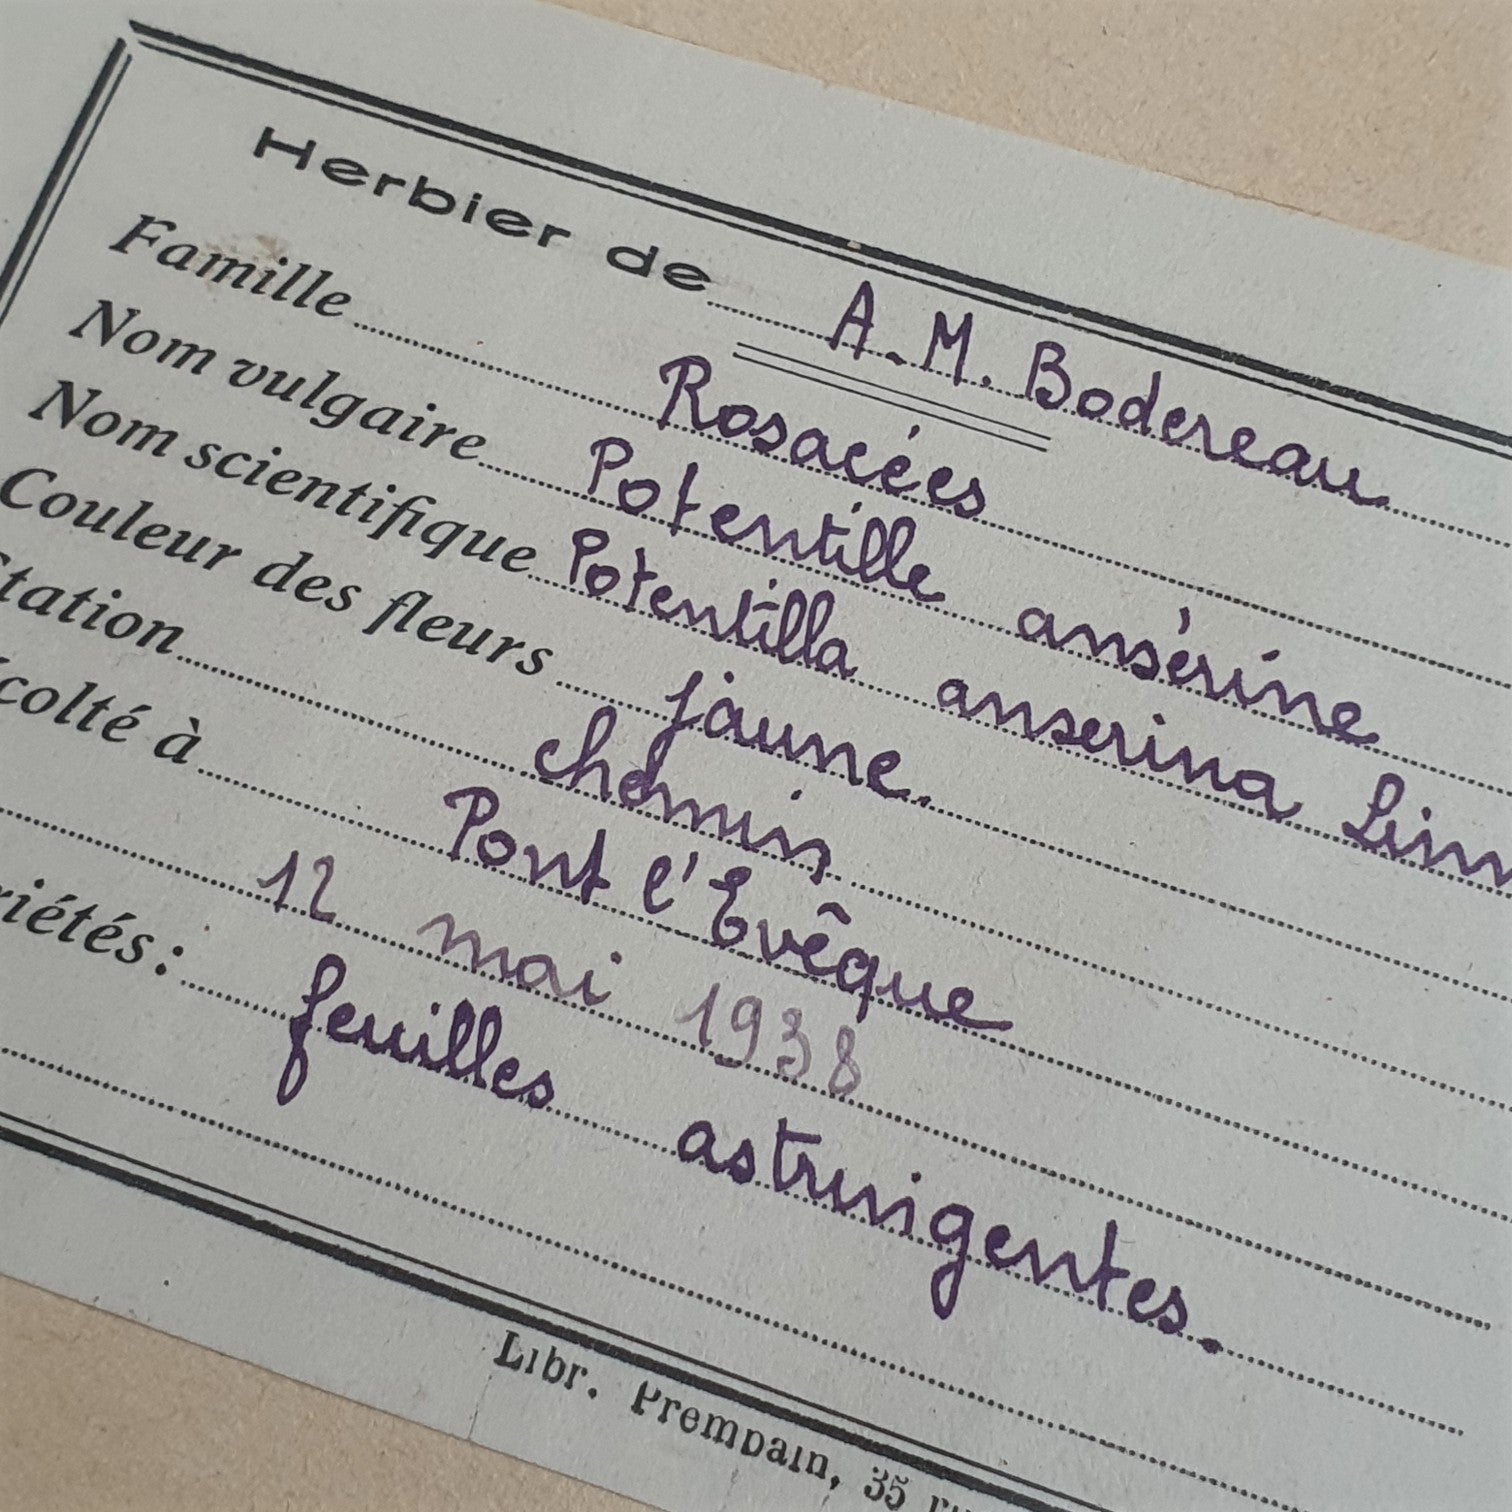 Herbier de A. M. Bodereau
Famille Rosacées
Nom vulgaire Potentille ansérine
Nom scientifique Potentilla anserina Linn
Couleur des fleurs jaune.
Station chemin
colté à Pont l'Evêque
12 mai 1938
riétés: feuilles astringentes.
Libr. Prempain, 35 ru